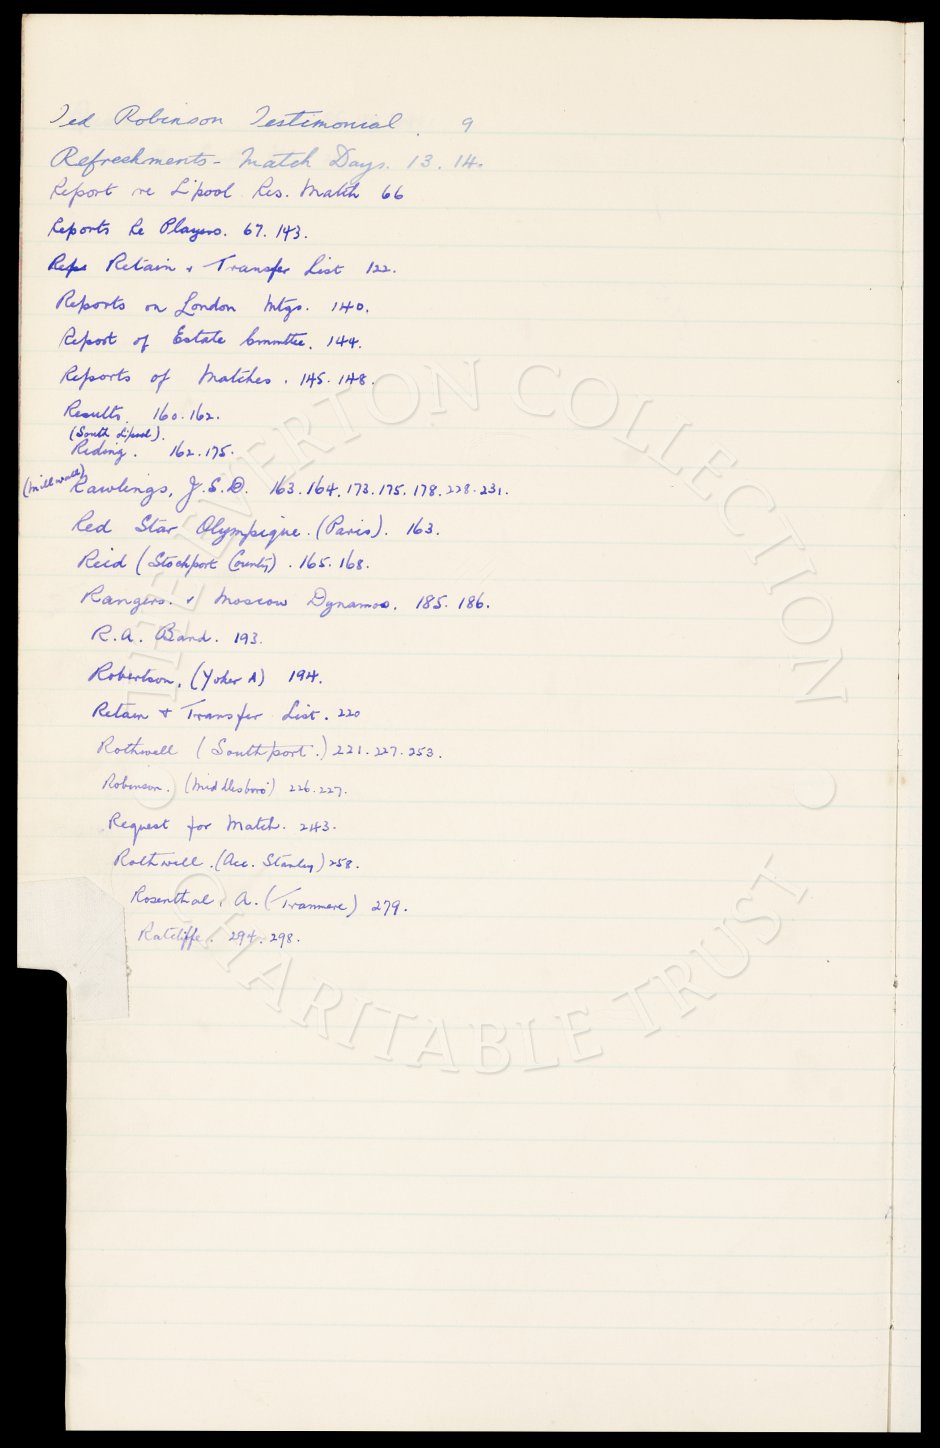 Ted Robinson Testimonial. 9
Refreshments - Match Days. 13. 14.
Report re L'pool Res. Match 66
Reports Re Players. 67. 143.
Reps Retain & Transfer List 122.
Reports on London Mtgs. 140.
Report of Estate Committee. 144.
Reports of Matches. 145. 148.
Results. 160. 162.
(South Lipool).
Riding. 162. 175.
(Millwall) Rawlings, J.S.D. 163. 164. 173. 175. 178. 228. 231.
Red Star Olympique. (Paris). 163.
Reid (Stockport County). 165. 168.
Rangers. v Moscow Dynamos. 185. 186.
R.A. Band. 193.
Robertson. (Yoker A) 194.
Retain & Transfer List. 220
Rothwell (Southport.) 221. 227. 253.
Robinson. (Middlesboro') 226. 227.
Request for Match. 243.
Rothwell. (Acc. Stanley) 258.
Rosenthal, A. (Tranmere) 279.
Ratcliffe. 294. 298.
THE EVERTON COLLECTION
CHARITABLE TRUST